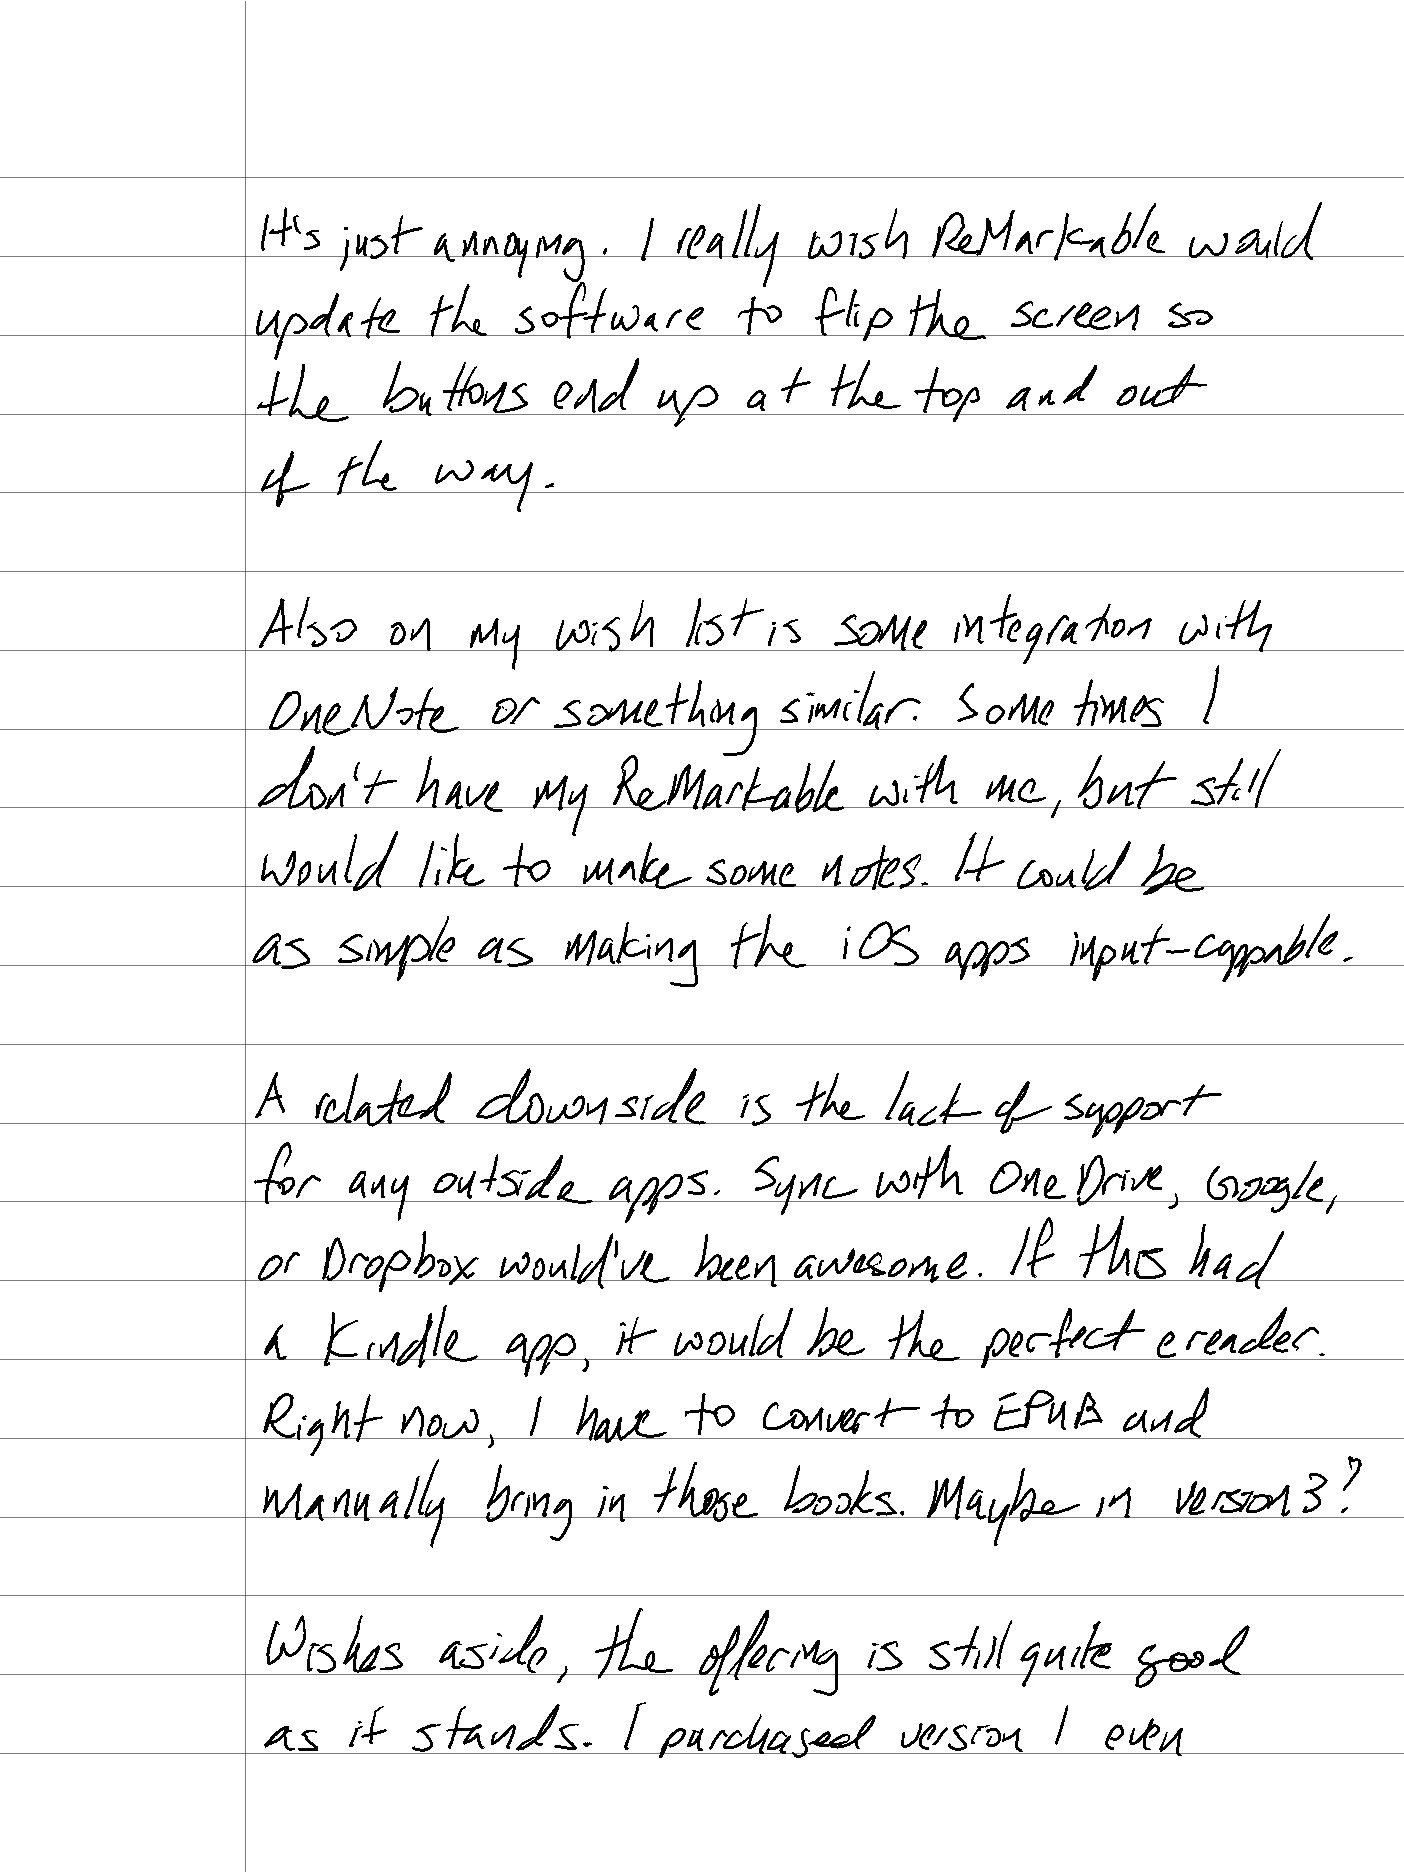 It's just annoying. I really wish ReMarkable would
update the software to flip the screen so
the buttons end up at the top and out
of the way.
Also on my wish list is some integration with
OneNote or something similar. Some times I
don't have my ReMarkable with me, but still
would like to make some notes. It could be
as simple as making the iOS apps input-cappable.
A related downside is the lack of support
for any outside apps. Sync with OneDrive, Google,
or Dropbox would've been awesome. If this had
a Kindle app, it would be the perfect ereader.
Right now, I have to convert to EPUB and
manually bring in those books. Maybe in version 3?
Wishes aside, the offering is still quite good
as it stands. I purchased version 1 even